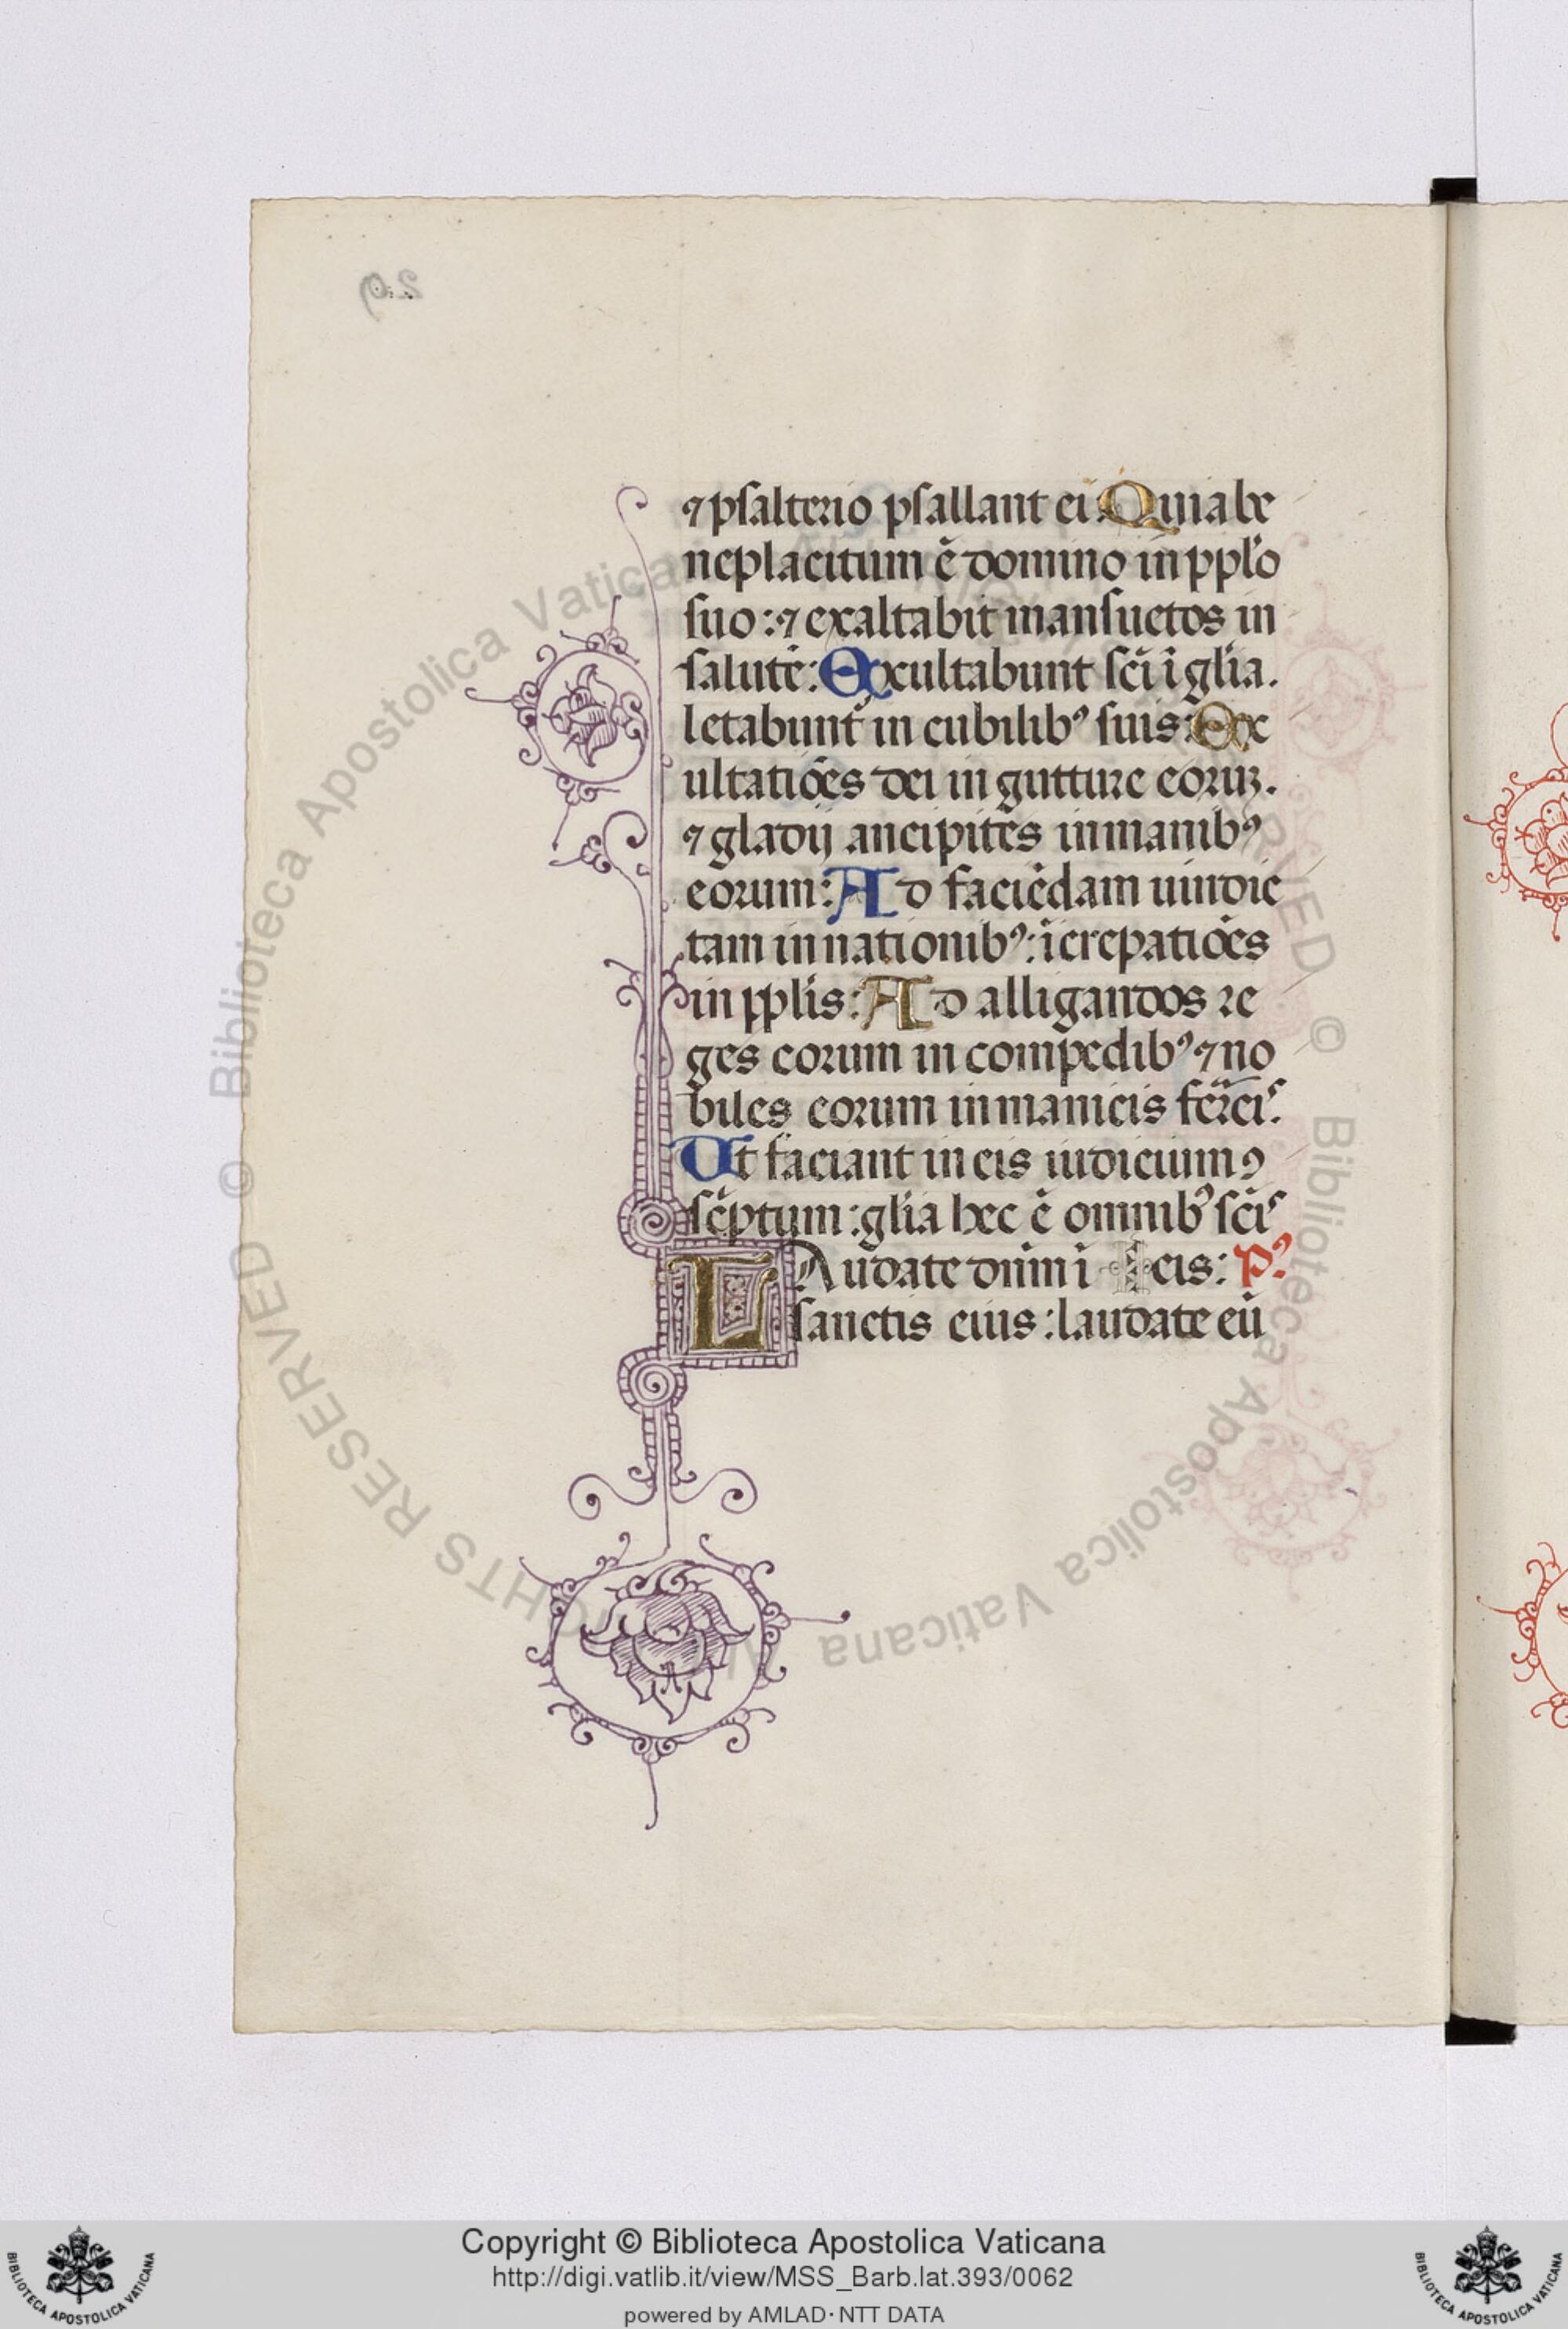 ⁊ psalterio psallant ei: Quia be
neplacitum ē domino in pplo
suo: ⁊ exaltabit mansuetos in
salutē: Exultabunt sci̅ i̅ gl̅ia.
letabunt᷑ in cubilibꝰ suis: Ex
ultatio̅es dei in gutture eoruꝫ.
⁊ gladij ancipites in manibꝰ
eorum: Ad facie̅dam uindic
tam in nationibꝰ: i̅crepatio̅es
in pplis: Ad alligandos re
ges eorum in compedibꝰ ⁊ no
biles eorum in manicis ferreis.
Ut faciant in eis iudicium ꝯ
sc̅ptum: gl̅ia hec ē omnibꝰ sci̅s
Laudate dn̅m i eis: pꝰ
sanctis eius: laudate eū
29
© Biblioteca Apostolica Vaticana
ALL RIGHTS RESERVED © Biblioteca Apostolica Vaticana
Copyright © Biblioteca Apostolica Vaticana
http://digi.vatlib.it/view/MSS_Barb.lat.393/0062
powered by AMLAD · NTT DATA
BIBLIOTECA APOSTOLICA VATICANA
BIBLIOTECA APOSTOLICA VATICANA